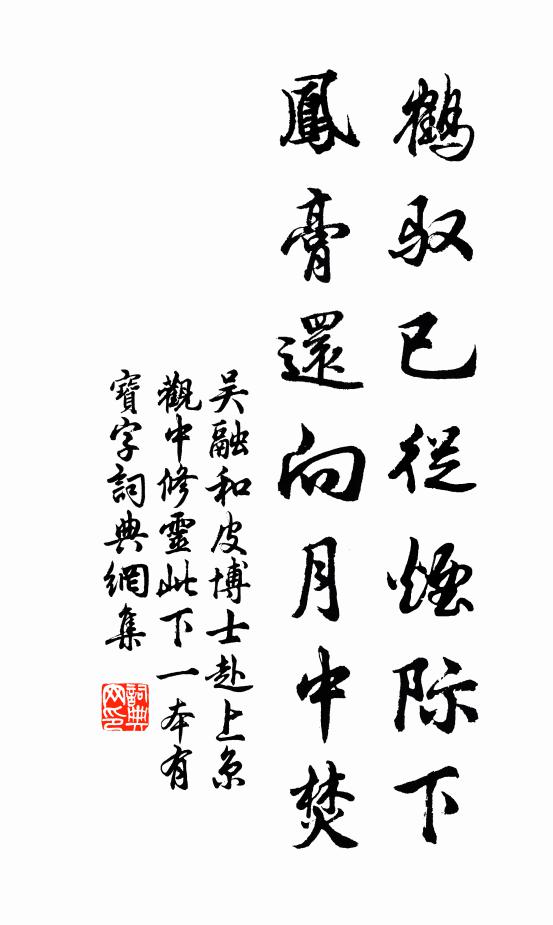 鶴驭已從煙际下
鳳膏還向月中焚
吴融和皮博士赴上京
觀中修靈此下一本有
寶字詞典網集
詞典网印